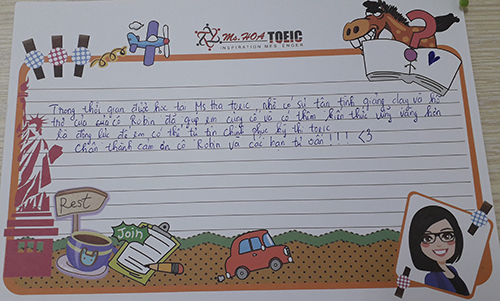 Ms.HOA TOEIC
INSPIRATION MESSENGER
Trong thời gian được học tại Ms Hoa toeic, nhờ có sự tận tình giảng dạy và hỗ
trợ của cô Robin đã giúp em củng cố và có thêm kiến thức vững vàng hơn
là động lực để em có thể tự tin chinh phục kỳ thi toeic
Chân thành cảm ơn cô Robin và các bạn tư vấn!!! <3
Rest
Join